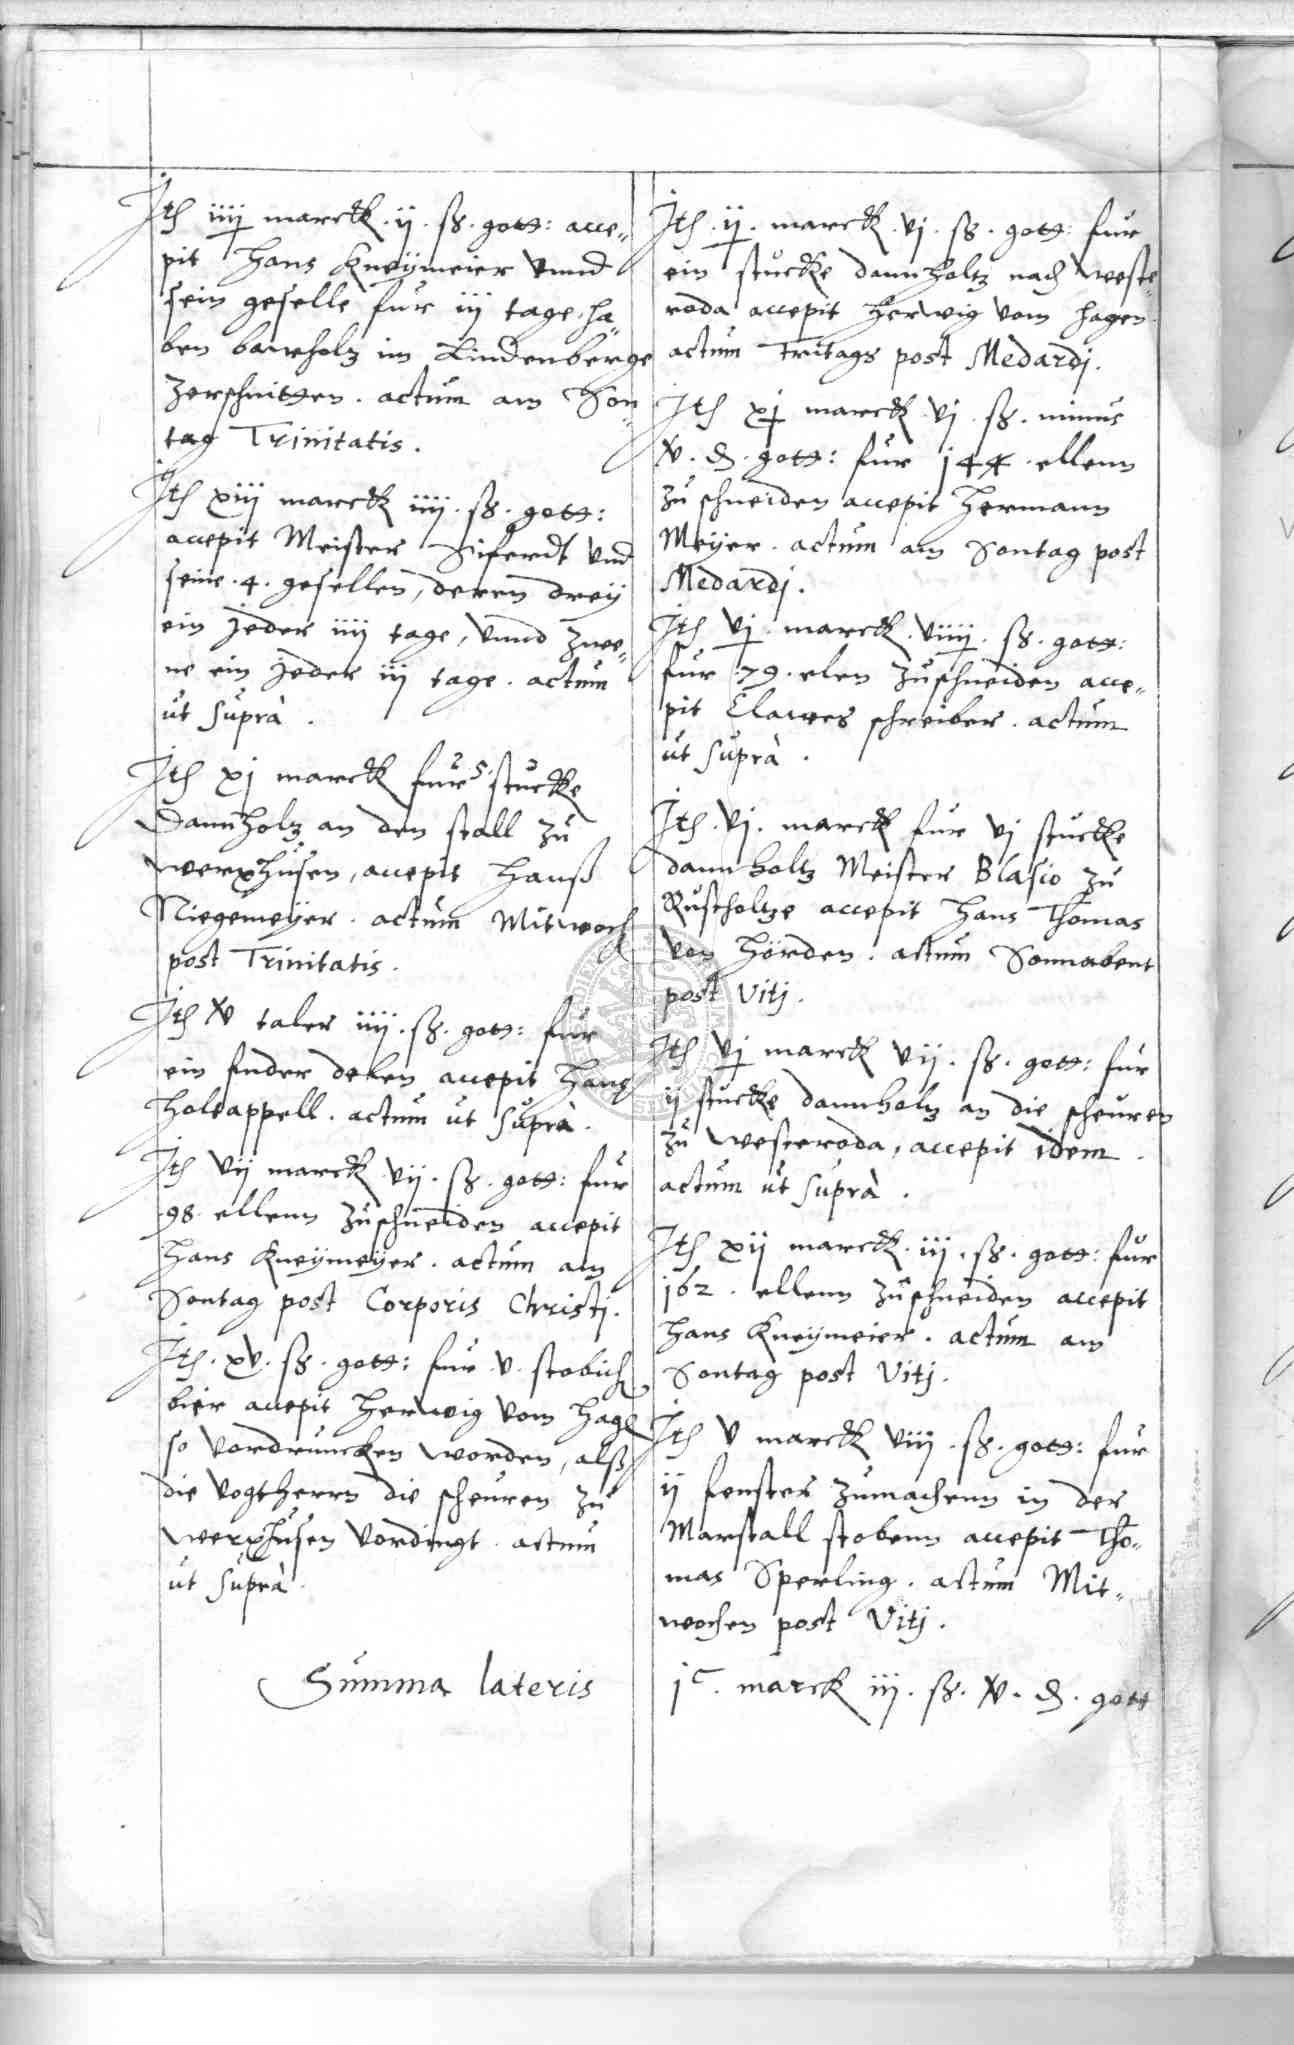 Ith iiij marck . ij . ß . gott: acce„
pit Hans Kneymeier vnnd
sein geselle fur iij tage, ha„
ben bawholtz im Lindenberge
zerschnitten . actum am Son„
tag Trinitatis .
Ith xiij marck iiij . ß . gott:
accepit Meister Siferdt vnd
seine . 4 . gesellen, deren drey
ein jeder iiij tage, vnnd zwe„
ne ein jeder iij tage . actum
ut suprà .
Ith xj marck fur 5 stucke
Dannholtz an den stall zu
werxhusen, accepit Hanß
Niegemeyer . actum Mitwoch
post Trinitatis .
Ith xv taler iiij . ß . gott: fur
ein fuder delen accepit Hans
Holtappell . actum ut suprà .
Ith vij marck vij . ß . gott: fur
98 ellenn zuschneiden accepit
Hans Kneymeyer . actum am
Sontag post Corporis Christj .
Ith . xv . ß . gott: fur v . stobich
bier accepit Herwig vom Hage
so vordruncken worden, alß
die vogtherrn die scheuren zu
werxhusen vordingt . actum
ut suprà .
Summa lateris
Ith . ij . marck . vj . ß . gott: fur
ein stucke dannholtz nach weste„
roda accepit Herwig vom Hagen .
actum Fritags post Medardj .
Ith xj marck vj . ß . minus
xv . d . gott: fur j44 . ellenn
zu schneiden accepit Hermann
Meyer . actum am Sontag post
Medardj .
Ith vj . marck . viiij . ß . gott:
fur . 79 . elen zuschneiden acce„
pit Clawes schreiber . actum
ut suprà .
Ith . vj . marck fur vj stucke
dannholtz Meister Blasio zu
Rustholtze accepit Hans Thomas
von Hörden . actum Sonnabent
post Vitj .
Ith vj marck vij . ß . gott: fur
ij stucke dannholtz an die scheuren
zu westeroda, accepit idem .
actum ut suprà .
Ith xij marck . iij . ß . gott: fur
j62 . ellenn zuschneiden accepit
Hans Kneymeier . actum am
Sontag post Vitj .
Ith v marck viij . ß . gott: fur
ij fenster zumachenn in der
Marstall stobenn accepit Tho„
mas Sperling . actum Mit„
wochen post Vitj .
jc . marck iij . ß . xv . d . gott